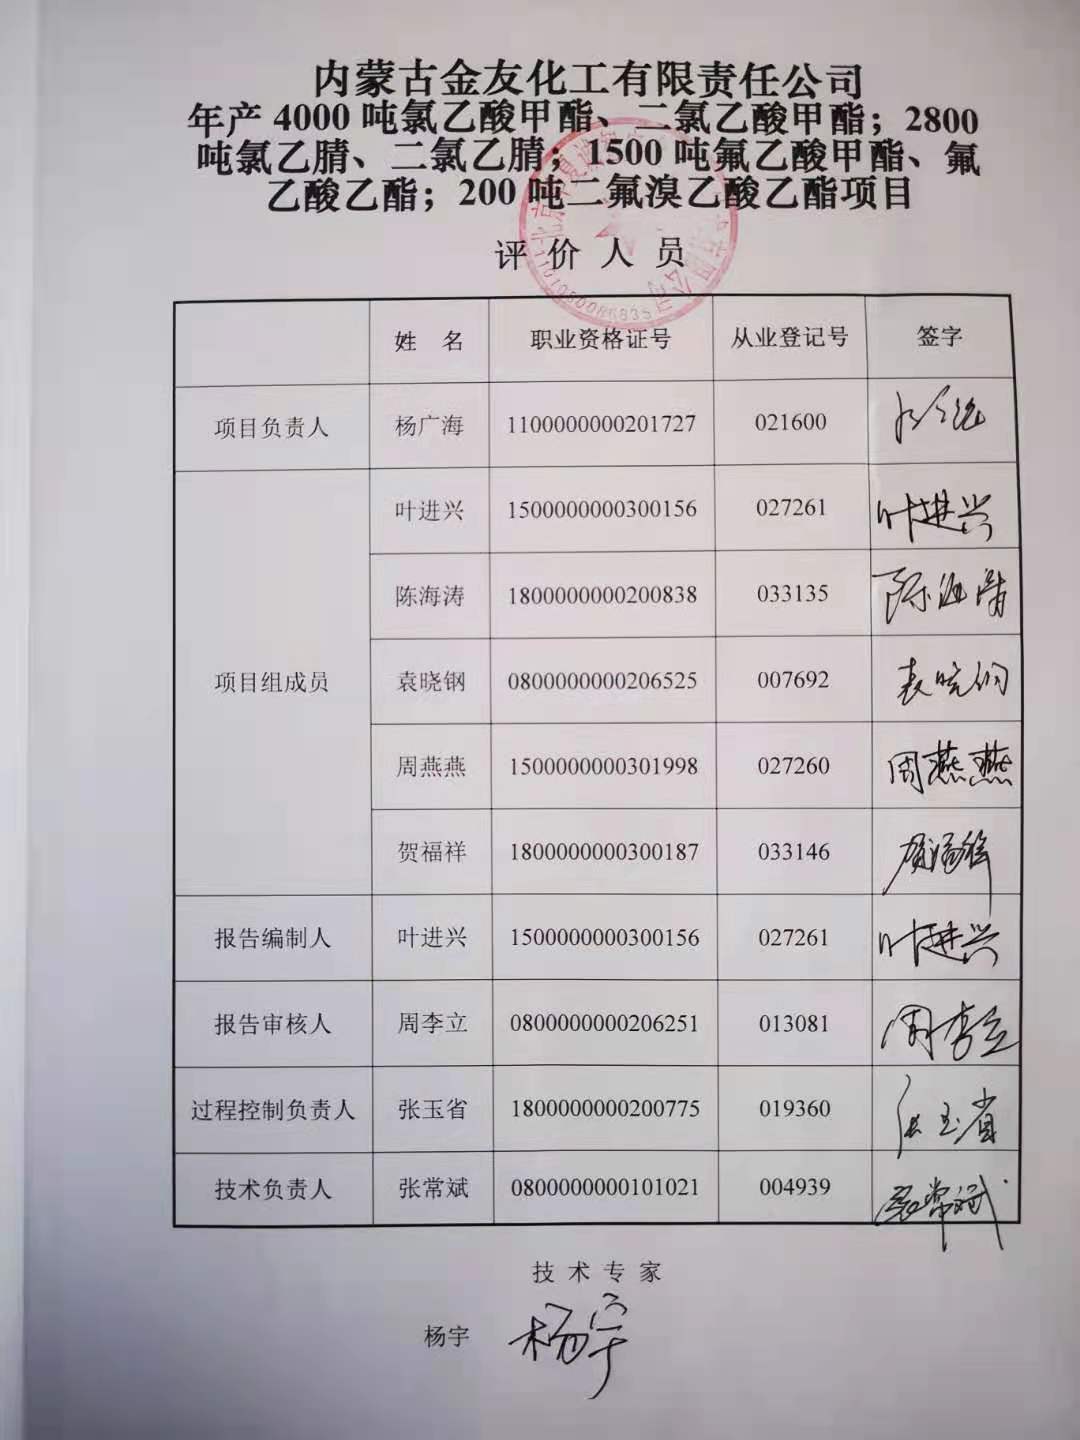 内蒙古金友化工有限责任公司
年产 4000 吨氯乙酸甲酯、二氯乙酸甲酯；2800
吨氯乙腈、二氯乙腈；1500 吨氟乙酸甲酯、氟
乙酸乙酯；200 吨二氟溴乙酸乙酯项目
评 价 人 员
姓 名 职业资格证号 从业登记号 签字
项目负责人 杨广海 1100000000201727 021600
叶进兴 1500000000300156 027261 叶进兴
陈海涛 1800000000200838 033135 陈海涛
项目组成员 袁晓钢 0800000000206525 007692 袁晓钢
周燕燕 1500000000301998 027260 周燕燕
贺福祥 1800000000300187 033146 贺福祥
报告编制人 叶进兴 1500000000300156 027261 叶进兴
报告审核人 周李立 0800000000206251 013081 周李立
过程控制负责人 张玉省 1800000000200775 019360 张玉省
技术负责人 张常斌 0800000000101021 004939 张常斌
技 术 专 家
杨宇 杨宇